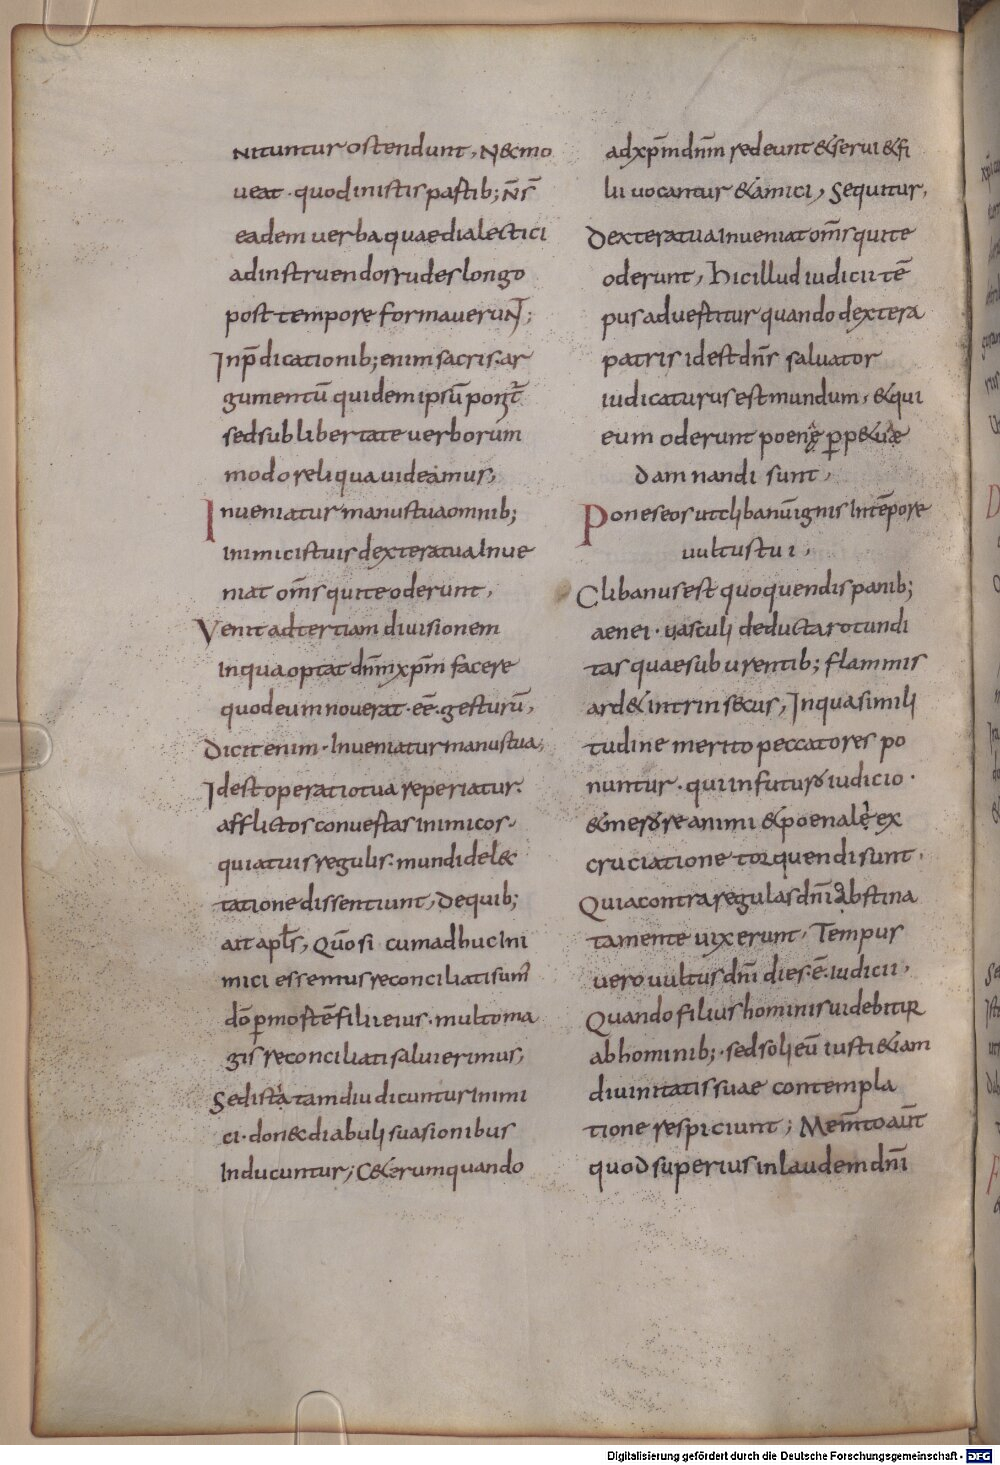 nituntur ostendunt, Nec mo
ueat · quod in istis partib; n̄s̄
eadem uerba quae dialectici
ad instruendos rudes longo
post tempore formauerunt;
In p̄dicationib; enim sacris. ar
gumentū quidem ipsū ponit̄
sed sub libertate uerborum
modo reliqua uideamus;
Inueniatur manus tua omnib;
inimicis tuis dextera tua Inue
niat om̄s qui te oderunt,
Venit ad tertiam diuisionem
In qua optat dn̄m xp̄m facere
quod eum nouerat · eē. gesturū,
Dicit enim · Inueniatur manus tua;
Idest operatio tua reperiatur.
afflictos conuertas inimicos.
qui a tuis regulis. mundi delec
tatione dissentiunt, De quib;
ait apl̄s, Qūo si cum adhuc Ini
mici essemus reconciliati sum̄
dō ꝑ mortē filii eius. multo ma
gis reconciliati salui erimus,
Sed ista tamdiu dicuntur Inimi
ci · donec diabuli suasionibus
Inducuntur; Ceterum quando
ad xp̄m dn̄m redeunt & serui & fi
lii uocantur & amici, Sequitur,
Dextera tua Inueniat om̄s qui te
oderunt, Hic illud iudicii tē
pus aduertitur quando dextera
patris idest dn̄s saluator
iudicaturus est mundum, & qui
eum oderunt poenę ꝑp&uæ
damnandi sunt,
Pones eos ut clibanū ignis In tēpore
uultus tui,
Clibanus est quoquendis panib;
aenei · uasculi deducta rotundi
tas quae sub urentib; flammis
ard& intrinsecus, In qua simili
tudine merito peccatores po
nuntur · qui in futuro iudicio ·
& merore animi & poenale ex
cruciatione torquendi sunt.
Quia contra regulas dn̄i obstina
tamente uixerunt. Tempus
uero uultus dn̄i dies. ē. iudicii,
Quando filius hominis uidebitur
ab hominib; · sed soli eū iusti &iam
diuinitatis suae contempla
tione respiciunt; Mem̄to aūt
quod superius in laudem dn̄i
Digitalisierung gefördert durch die Deutsche Forschungsgemeinschaft - DFG